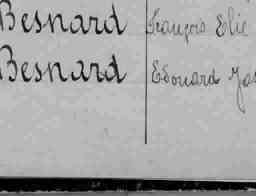 Besnard François Elie
Besnard Edouard